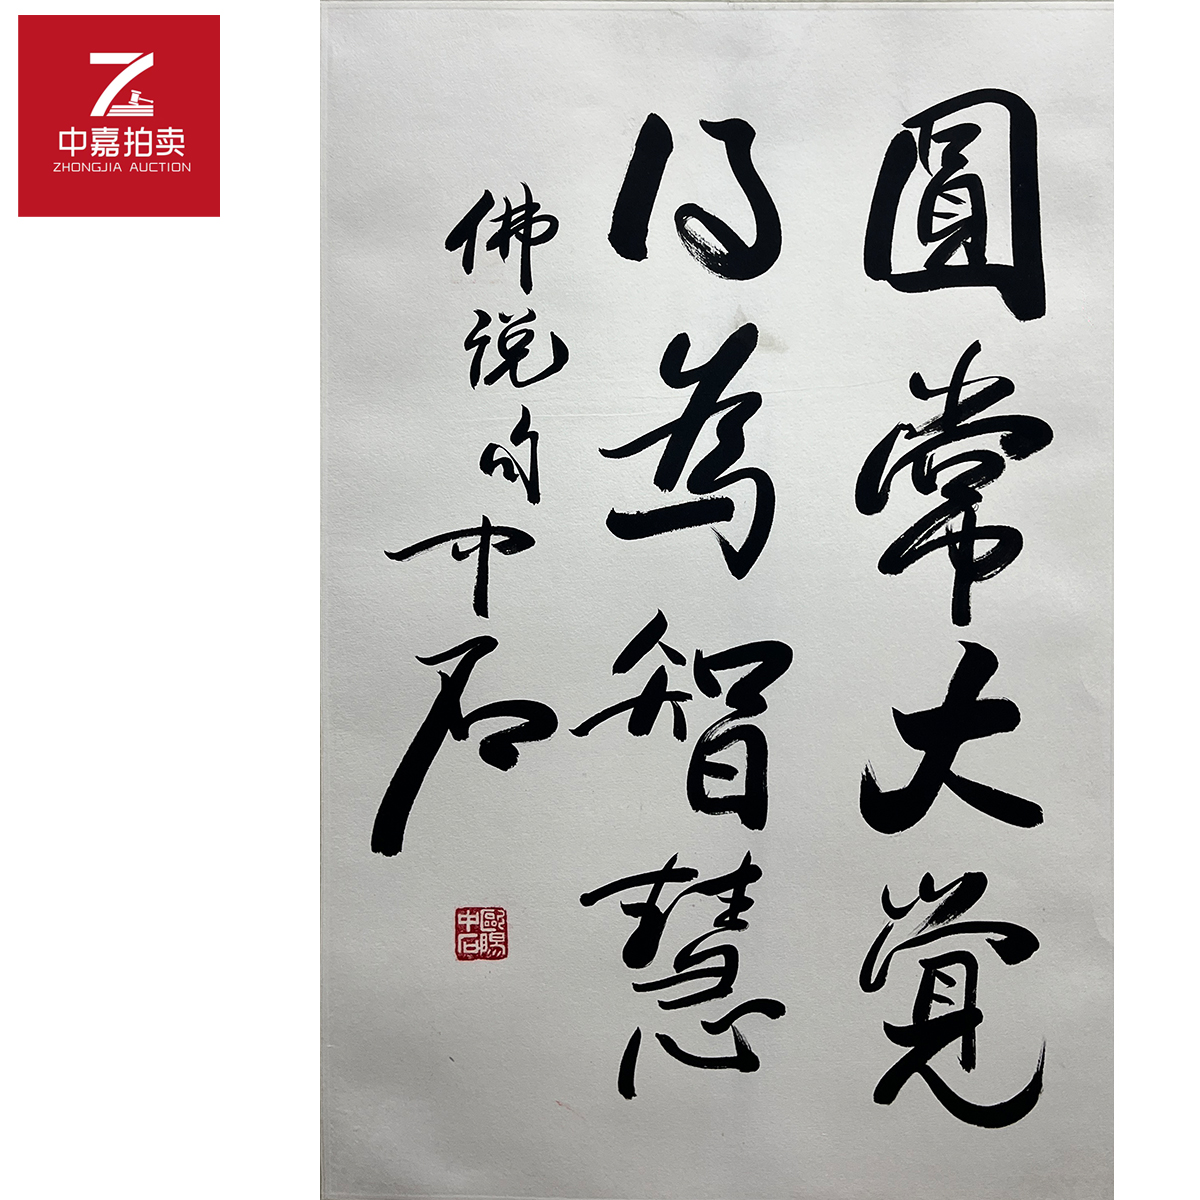 中嘉拍卖
ZHONGJIA AUCTION
圓常大覚
得為智慧
佛说句中石
歐陽中石